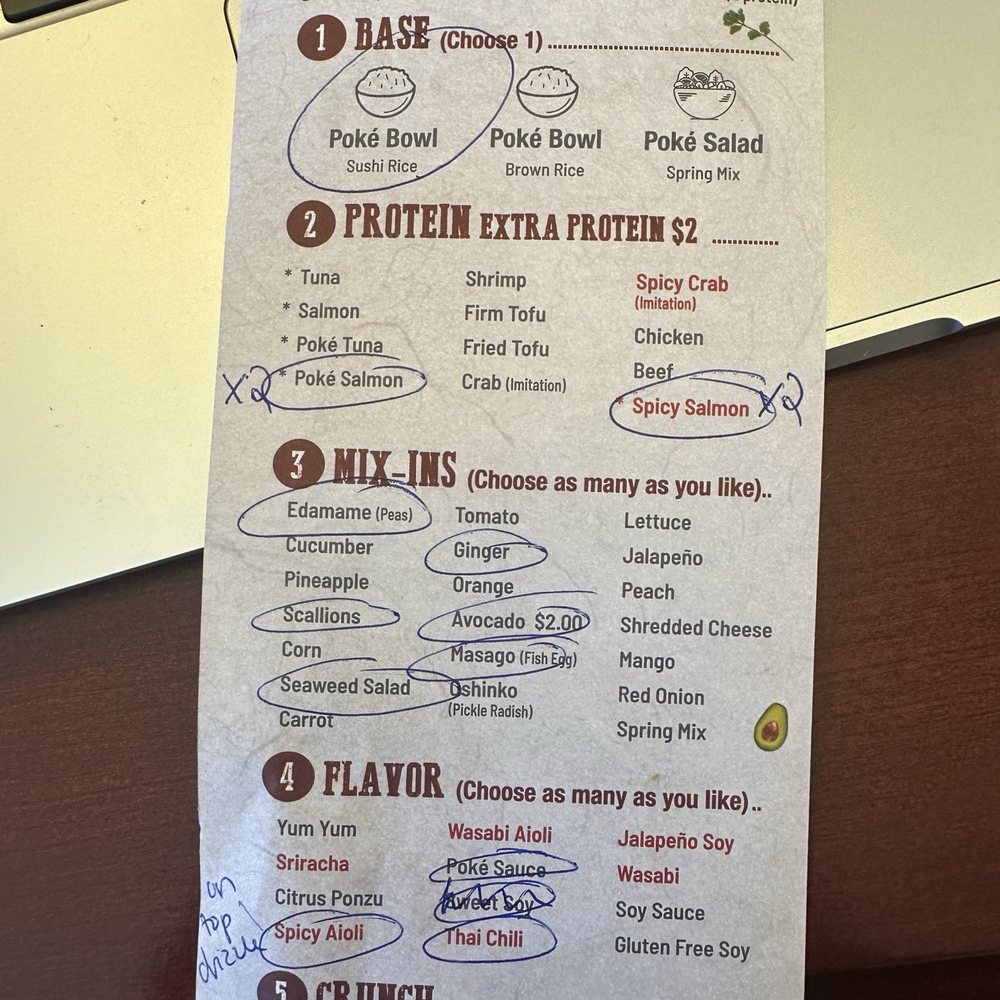 protein)
1 BASE (Choose 1)
Poké Bowl Poké Bowl Poké Salad
Sushi Rice Brown Rice Spring Mix
2 PROTEIN EXTRA PROTEIN $2
* Tuna Shrimp Spicy Crab
(Imitation)
* Salmon Firm Tofu Chicken
* Poké Tuna Fried Tofu Beef
X2 * Poké Salmon Crab (Imitation) * Spicy Salmon X2
3 MIX-INS (Choose as many as you like)..
Edamame (Peas) Tomato Lettuce
Cucumber Ginger Jalapeño
Pineapple Orange Peach
Scallions Avocado $2.00 Shredded Cheese
Corn Masago (Fish Egg) Mango
Seaweed Salad Oshinko Red Onion
(Pickle Radish)
Carrot Spring Mix
4 FLAVOR (Choose as many as you like)..
Yum Yum Wasabi Aioli Jalapeño Soy
Sriracha Poké Sauce Wasabi
Citrus Ponzu Sweet Soy Soy Sauce
Spicy Aioli Thai Chili Gluten Free Soy
on
top
drizzle
5 CRUNCH